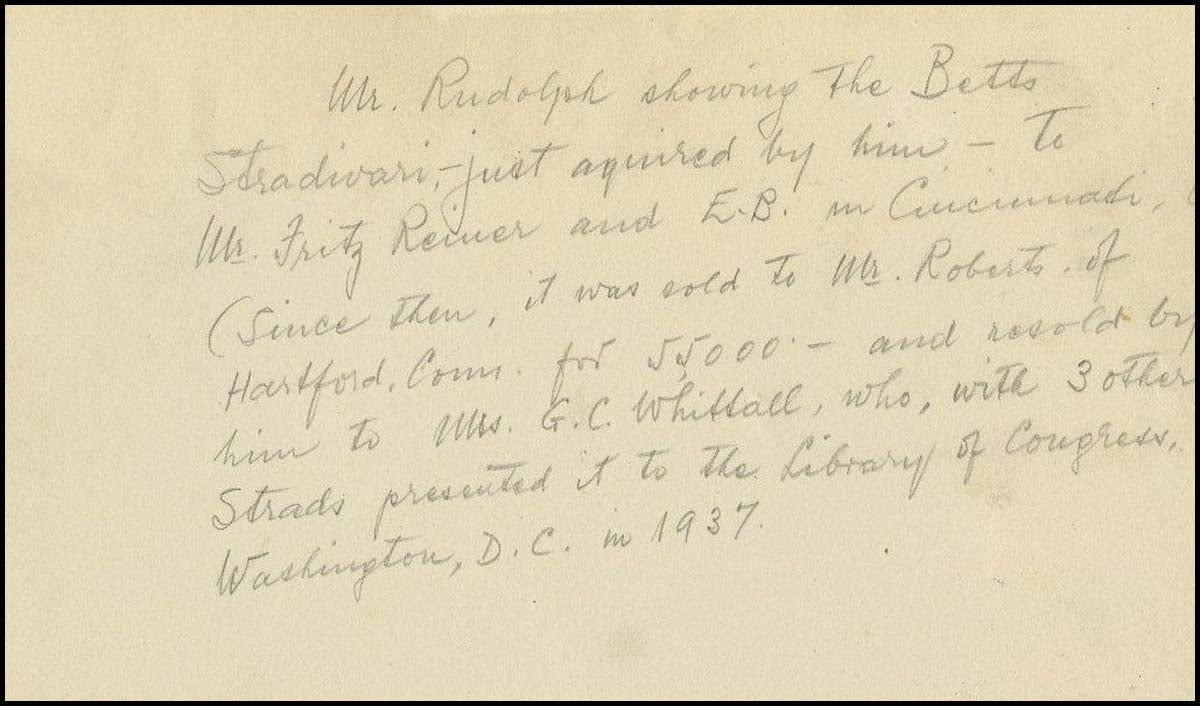 Mr. Rudolph showing the Betts
Stradivari, - just aquired by him - to
Mr. Fritz Reiner and E.B. in Cincinnati,
(Since then, it was sold to Mr. Roberts of
Hartford, Conn. for 55,000 - and resold by
him to Mrs. G.C. Whittall, who, with 3 other
Strads presented it to the Library of Congress,
Washington, D.C. in 1937.